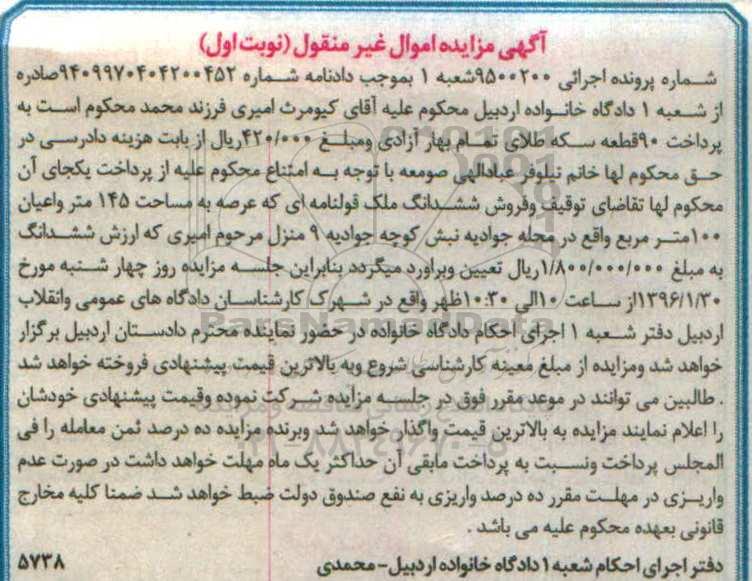 آگهی مزایده اموال غیر منقول (نوبت اول)
شماره پرونده اجرائی ۹۵۰۰۲۰۰شعبه ۱ بموجب دادنامه شماره ۹۴۰۹۹۷۰۴۰۴۲۰۰۴۵۲صادره
از شعبه ۱ دادگاه خانواده اردبیل محکوم علیه آقای کیومرث امیری فرزند محمد محکوم است به
پرداخت ۹۰قطعه سکه طلای تمام بهار آزادی ومبلغ ۴۲۰/۰۰۰ریال از بابت هزینه دادرسی در
حق محکوم لها خانم نیلوفر عبادالهی صومعه با توجه به امتناع محکوم علیه از پرداخت یکجای آن
محکوم لها تقاضای توقیف وفروش ششدانگ ملک قولنامه ای که عرصه به مساحت ۱۴۵ متر واعیان
۱۰۰متر مربع واقع در محله جوادیه نبش کوچه جوادیه ۹ منزل مرحوم امیری که ارزش ششدانگ
به مبلغ ۱/۸۰۰/۰۰۰/۰۰۰ریال تعیین وبراورد میگردد بنابراین جلسه مزایده روز چهار شنبه مورخ
۱۳۹۶/۱/۳۰از ساعت ۱۰الی ۱۰:۳۰ظهر واقع در شهرک کارشناسان دادگاه های عمومی وانقلاب
اردبیل دفتر شعبه ۱ اجرای احکام دادگاه خانواده در حضور نماینده محترم دادستان اردبیل برگزار
خواهد شد ومزایده از مبلغ معینه کارشناسی شروع وبه بالاترین قیمت پیشنهادی فروخته خواهد شد
. طالبین می توانند در موعد مقرر فوق در جلسه مزایده شرکت نموده وقیمت پیشنهادی خودشان
را اعلام نمایند مزایده به بالاترین قیمت واگذار خواهد شد وبرنده مزایده ده درصد ثمن معامله را فی
المجلس پرداخت ونسبت به پرداخت مابقی آن حداکثر یک ماه مهلت خواهد داشت در صورت عدم
واریزی در مهلت مقرر ده درصد واریزی به نفع صندوق دولت ضبط خواهد شد ضمنا کلیه مخارج
قانونی بعهده محکوم علیه می باشد .
دفتر اجرای احکام شعبه ۱ دادگاه خانواده اردبیل - محمدی ۵۷۳۸
ParsNamadData